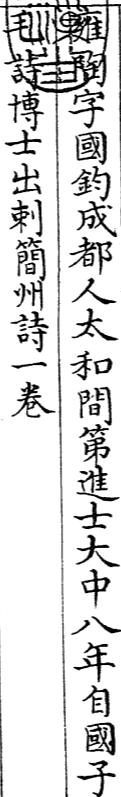 雍陶字國鈞成都人太和間第進士大中八年自國子
毛詩博士出刺簡州詩一卷